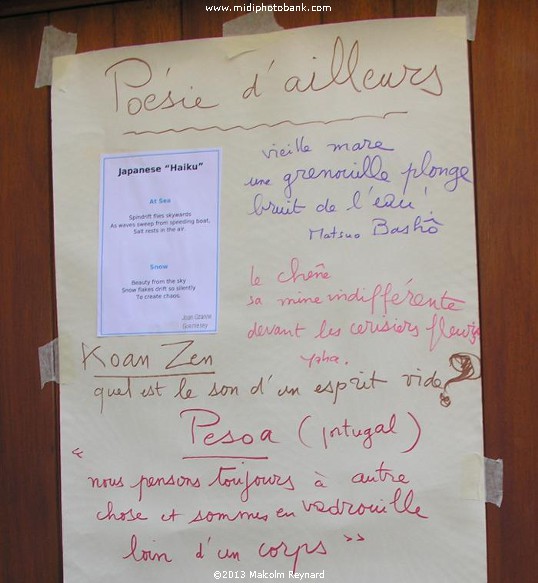 www.midiphotobank.com
Poésie d'ailleurs
Japanese "Haiku"
At Sea
Spindrift flies skywards
As waves sweep from speeding boat,
Salt rests in the air.
Snow
Beauty from the sky
Snow flakes drift so silently
To create chaos.
Joan
vieille mare
une grenouille plonge
bruit de l'eau !
Matsuo Bashô
le chêne
sa mine indifférente
devant les cerisiers fleuris
Koan Zen
quel est le son d'un esprit vide ?
Pesoa (portugal)
"nous pensons toujours à autre
chose et sommes en vadrouille
loin d'un corps"
©2013 Malcolm Reynard